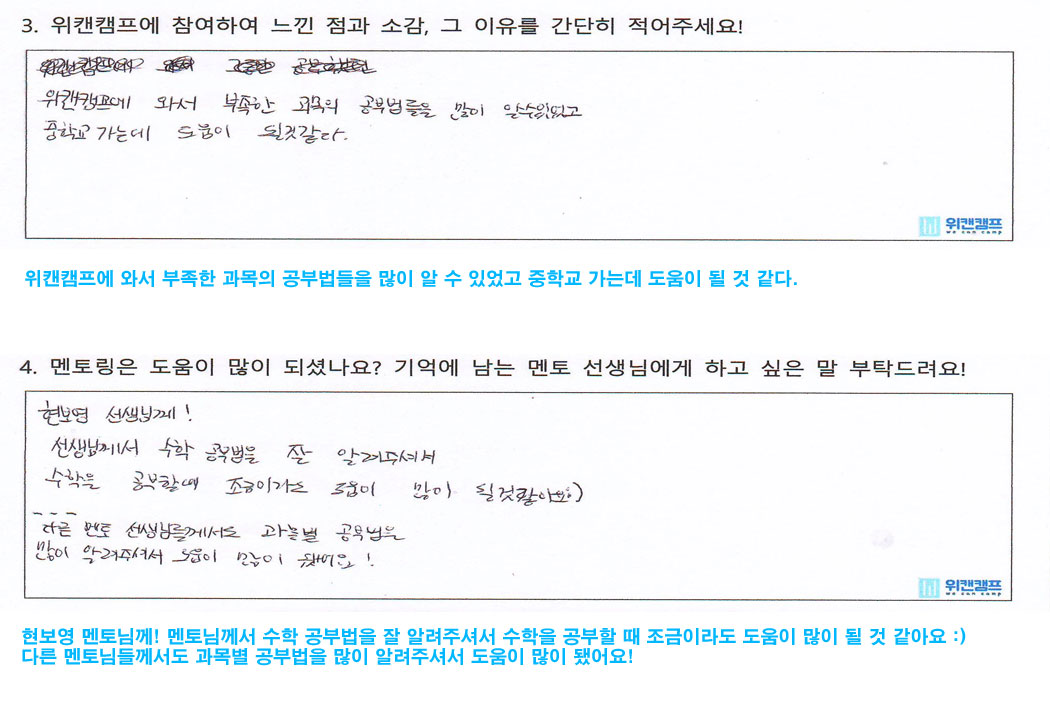 3. 위캔캠프에 참여하여 느낀 점과 소감, 그 이유를 간단히 적어주세요!
위캔캠프에 와서 부족한 과목의 공부법들을 많이 알수있었고
중학교 가는데 도움이 될것같다.
위캔캠프
we can camp
위캔캠프에 와서 부족한 과목의 공부법들을 많이 알 수 있었고 중학교 가는데 도움이 될 것 같다.
4. 멘토링은 도움이 많이 되셨나요? 기억에 남는 멘토 선생님에게 하고 싶은 말 부탁드려요!
현보영 선생님께!
선생님께서 수학 공부법을 잘 알려주셔서
수학을 공부할때 조금이라도 도움이 많이 될것같아요:)
다른 멘토 선생님들께서도 과목별 공부법을
많이 알려주셔서 도움이 많이 됐어요!
위캔캠프
we can camp
현보영 멘토님께! 멘토님께서 수학 공부법을 잘 알려주셔서 수학을 공부할 때 조금이라도 도움이 많이 될 것 같아요 :)
다른 멘토님들께서도 과목별 공부법을 많이 알려주셔서 도움이 많이 됐어요!